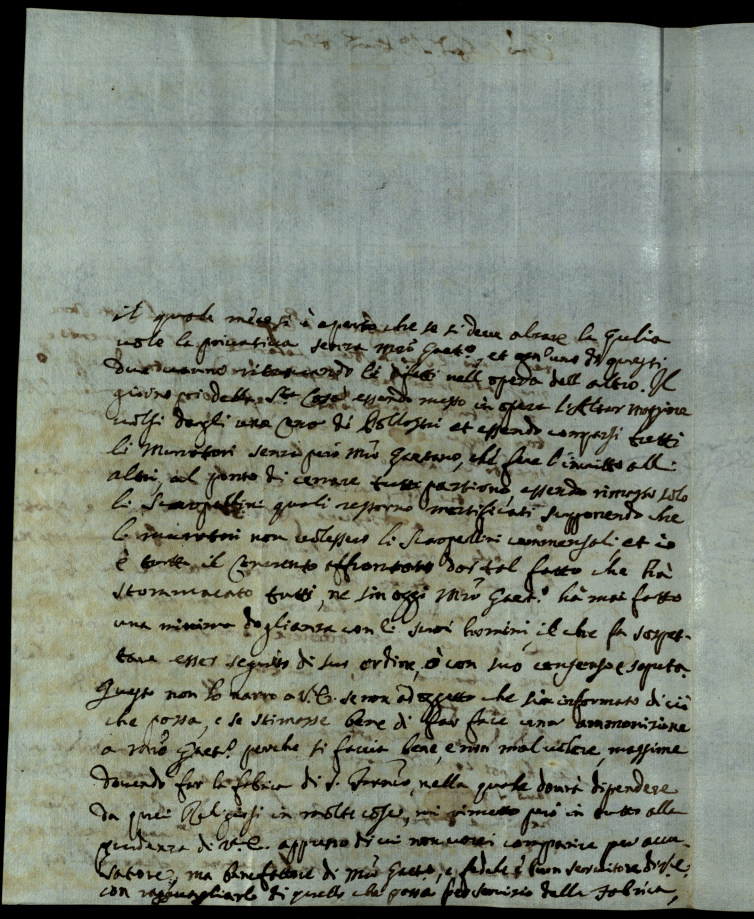 il quale meco si è aperto che se si deve alzare la Guglia
vole la privativa senza Mrõ Gaetº, et ogn'uno di questi
due vanno ritrovando li difetti nell'opera dell'altro. Il
giorno poi della Sta Casa essendo messo in opera l'Altar maggiore
volsi dargli una Cena di et essendo comparsi tutti
li Muratori senza però Mrõ Gaetano, che fece l'invitto alli
altri, al ponto di cenare tutti partiono, essendo rimasto solo
li Scarpellini quali restorno mortificati supponendo che
li muratori non volessero li Scarpellini commensali, et io
e tutto il Convento affrontato dor tal fatto che hà
stommacato tutti, ne sin oggi Mrõ Gaetº hà mai fatto
una minima doglianza con li suoi homini, il che fa sospet-
tare esser seguito di suo ordine, ò con suo consenso e saputa.
Questo non lo narro a V.E. se non ad oggetto che sia informato di ciò
che passa, e se stimasse bene di far fare una ammonizione
a Mrõ Gaetº perche si faccia bene, e non mal volere, massime
dovendo far la fabrica di S. nella quale dovrà dipendere
da quei Religiosi in molte cose, mi rimetto però in tutto alla
prudenza di V.E. appresso di cui non vorrei comparire per accu-
satore, ma benefattore di Mrõ Gaetº, e fedele e buon servitore di V.E.
con ragguagliarlo di quello che passa per servizio della fabrica,